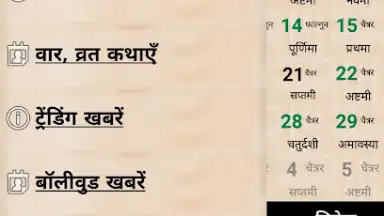 अष्टमी नवमी
14 फाल्गुन 15 चैत्र
पूर्णिमा प्रथमा
वार, व्रत कथाएँ
21 चैत्र 22 चैत्र
सप्तमी अष्टमी
ट्रेंडिंग खबरें
28 चैत्र 29 चैत्र
चतुर्दशी अमावस्या
4 चैत्र 5 चैत्र
बॉलीवुड खबरें
सप्तमी अष्टमी